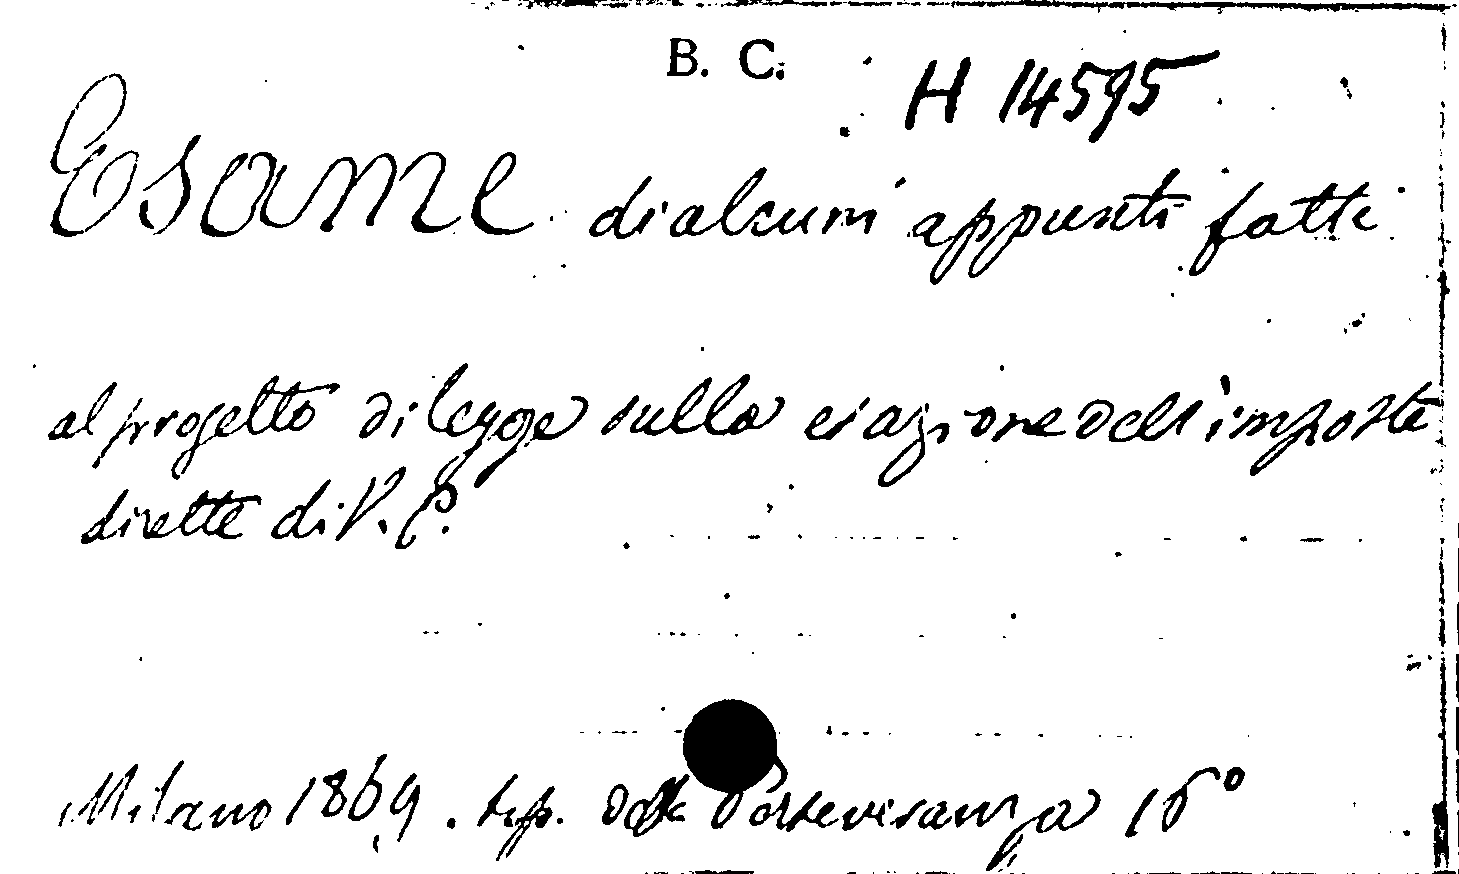 B. C. H 14595
Esame di alcuni appunti fatti
al progetto di legge sulla esazione dell'imposte
dirette di V. P.
Milano 1869. tip. della Perseveranza 16°